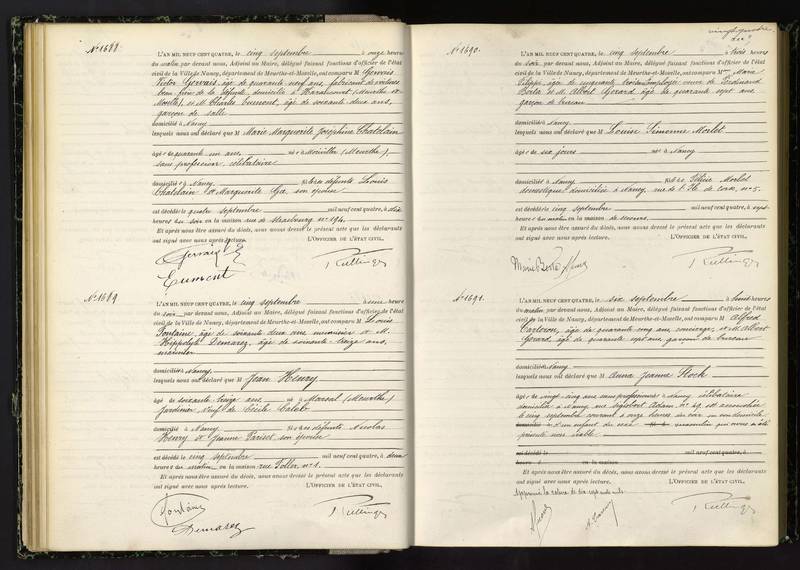 N° 1688
L'AN MIL NEUF CENT QUATRE, le cinq septembre à onze heures
du matin par devant nous, Adjoint au Maire, délégué faisant fonctions d'officier de l'état
civil de la Ville de Nancy, département de Meurthe-et-Moselle, ont comparu M Gervais
Victor Gervais, âgé de quarante neuf ans, fabricant de voitures
beau frère de la défunte, domicilié à Haraucourt (Meurthe et
Moselle), et M. Charles Cumont, âgé de soixante deux ans,
garçon de salle
domicilié à Nancy
lesquels nous ont déclaré que M Marie Marguerite Joséphine Chatelain
âgée quarante un ans, née à Moivillers (Meurthe),
sans profession, célibataire
domiciliée à Nancy, fille de défunts Louis
Chatelain et Marguerite Ga, son épouse
est décédée le quatre septembre mil neuf cent quatre, à dix
heures du soir en la maison rue de Strasbourg n° 194.
Et après nous être assuré du décès, nous avons dressé le présent acte que les déclarants
ont signé avec nous après lecture. L'OFFICIER DE L'ÉTAT CIVIL,
N° 1689
L'AN MIL NEUF CENT QUATRE, le cinq septembre à heures
du soir par devant nous, Adjoint au Maire, délégué faisant fonctions d'officier de l'état
civil de la Ville de Nancy, département de Meurthe-et-Moselle, ont comparu M Louis
Fontaine, âgé de soixante deux ans menuisier et M.
Hippolyte Demarez, âgé de soixante treize ans,
domiciliés à Nancy
lesquels nous ont déclaré que M Jean Henry
âgé de soixante treize ans né à Marsal (Meurthe)
jardinier veuf de Cécile
domicilié à Nancy fils de défunts Nicolas
Henry et Jeanne Pariset son épouse
est décédé le cinq septembre mil neuf cent quatre, à deux
heures du matin, en la maison rue Poller n° 1.
Et après nous être assuré du décès, nous avons dressé le présent acte que les déclarants
ont signé avec nous après lecture. L'OFFICIER DE L'ÉTAT CIVIL,
Fontaine
Demarez
N° 1690
L'AN MIL NEUF CENT QUATRE, le cinq septembre à trois heures
du soir par devant nous, Adjoint au Maire, délégué faisant fonctions d'officier de l'état
civil de la Ville de Nancy, département de Meurthe-et-Moselle, ont comparu M Marie
âgée de cinquante employée veuve de Ferdinand
Borla et M. Albert Gérard âgé de quarante sept ans
garçon de bureau
domiciliés à Nancy
lesquels nous ont déclaré que M Louise Simonne Morlot
âgée de six jours née à Nancy
domiciliée à Nancy fille de Céline Morlot
domestique domiciliée à Nancy, rue de l'Île de Corse, n° 5.
est décédée le cinq septembre mil neuf cent quatre, à sept
heures du matin en la maison de secours.
Et après nous être assuré du décès, nous avons dressé le présent acte que les déclarants
ont signé avec nous après lecture. L'OFFICIER DE L'ÉTAT CIVIL,
N° 1691
L'AN MIL NEUF CENT QUATRE, le six septembre à heures
du matin par devant nous, Adjoint au Maire, délégué faisant fonctions d'officier de l'état
civil de la Ville de Nancy, département de Meurthe-et-Moselle, ont comparu M Alfred
âgé de quarante cinq ans, concierge, et M. Albert
Gérard, âgé de quarante sept ans, garçon de bureau
domiciliés à Nancy
lesquels nous ont déclaré que M Anna Jeanne Stock
âgée de vingt cinq ans sans profession née à Nancy célibataire
domiciliée à Nancy rue Sigisbert Adam n° 49 est accouchée
le cinq septembre courant à onze heures du soir en son domicile
d'un enfant du sexe masculin qui nous a été
présenté non viable.
est décédé le mil neuf cent quatre, à
heures d en la maison
Et après nous être assuré du décès, nous avons dressé le présent acte que les déclarants
ont signé avec nous après lecture. L'OFFICIER DE L'ÉTAT CIVIL,